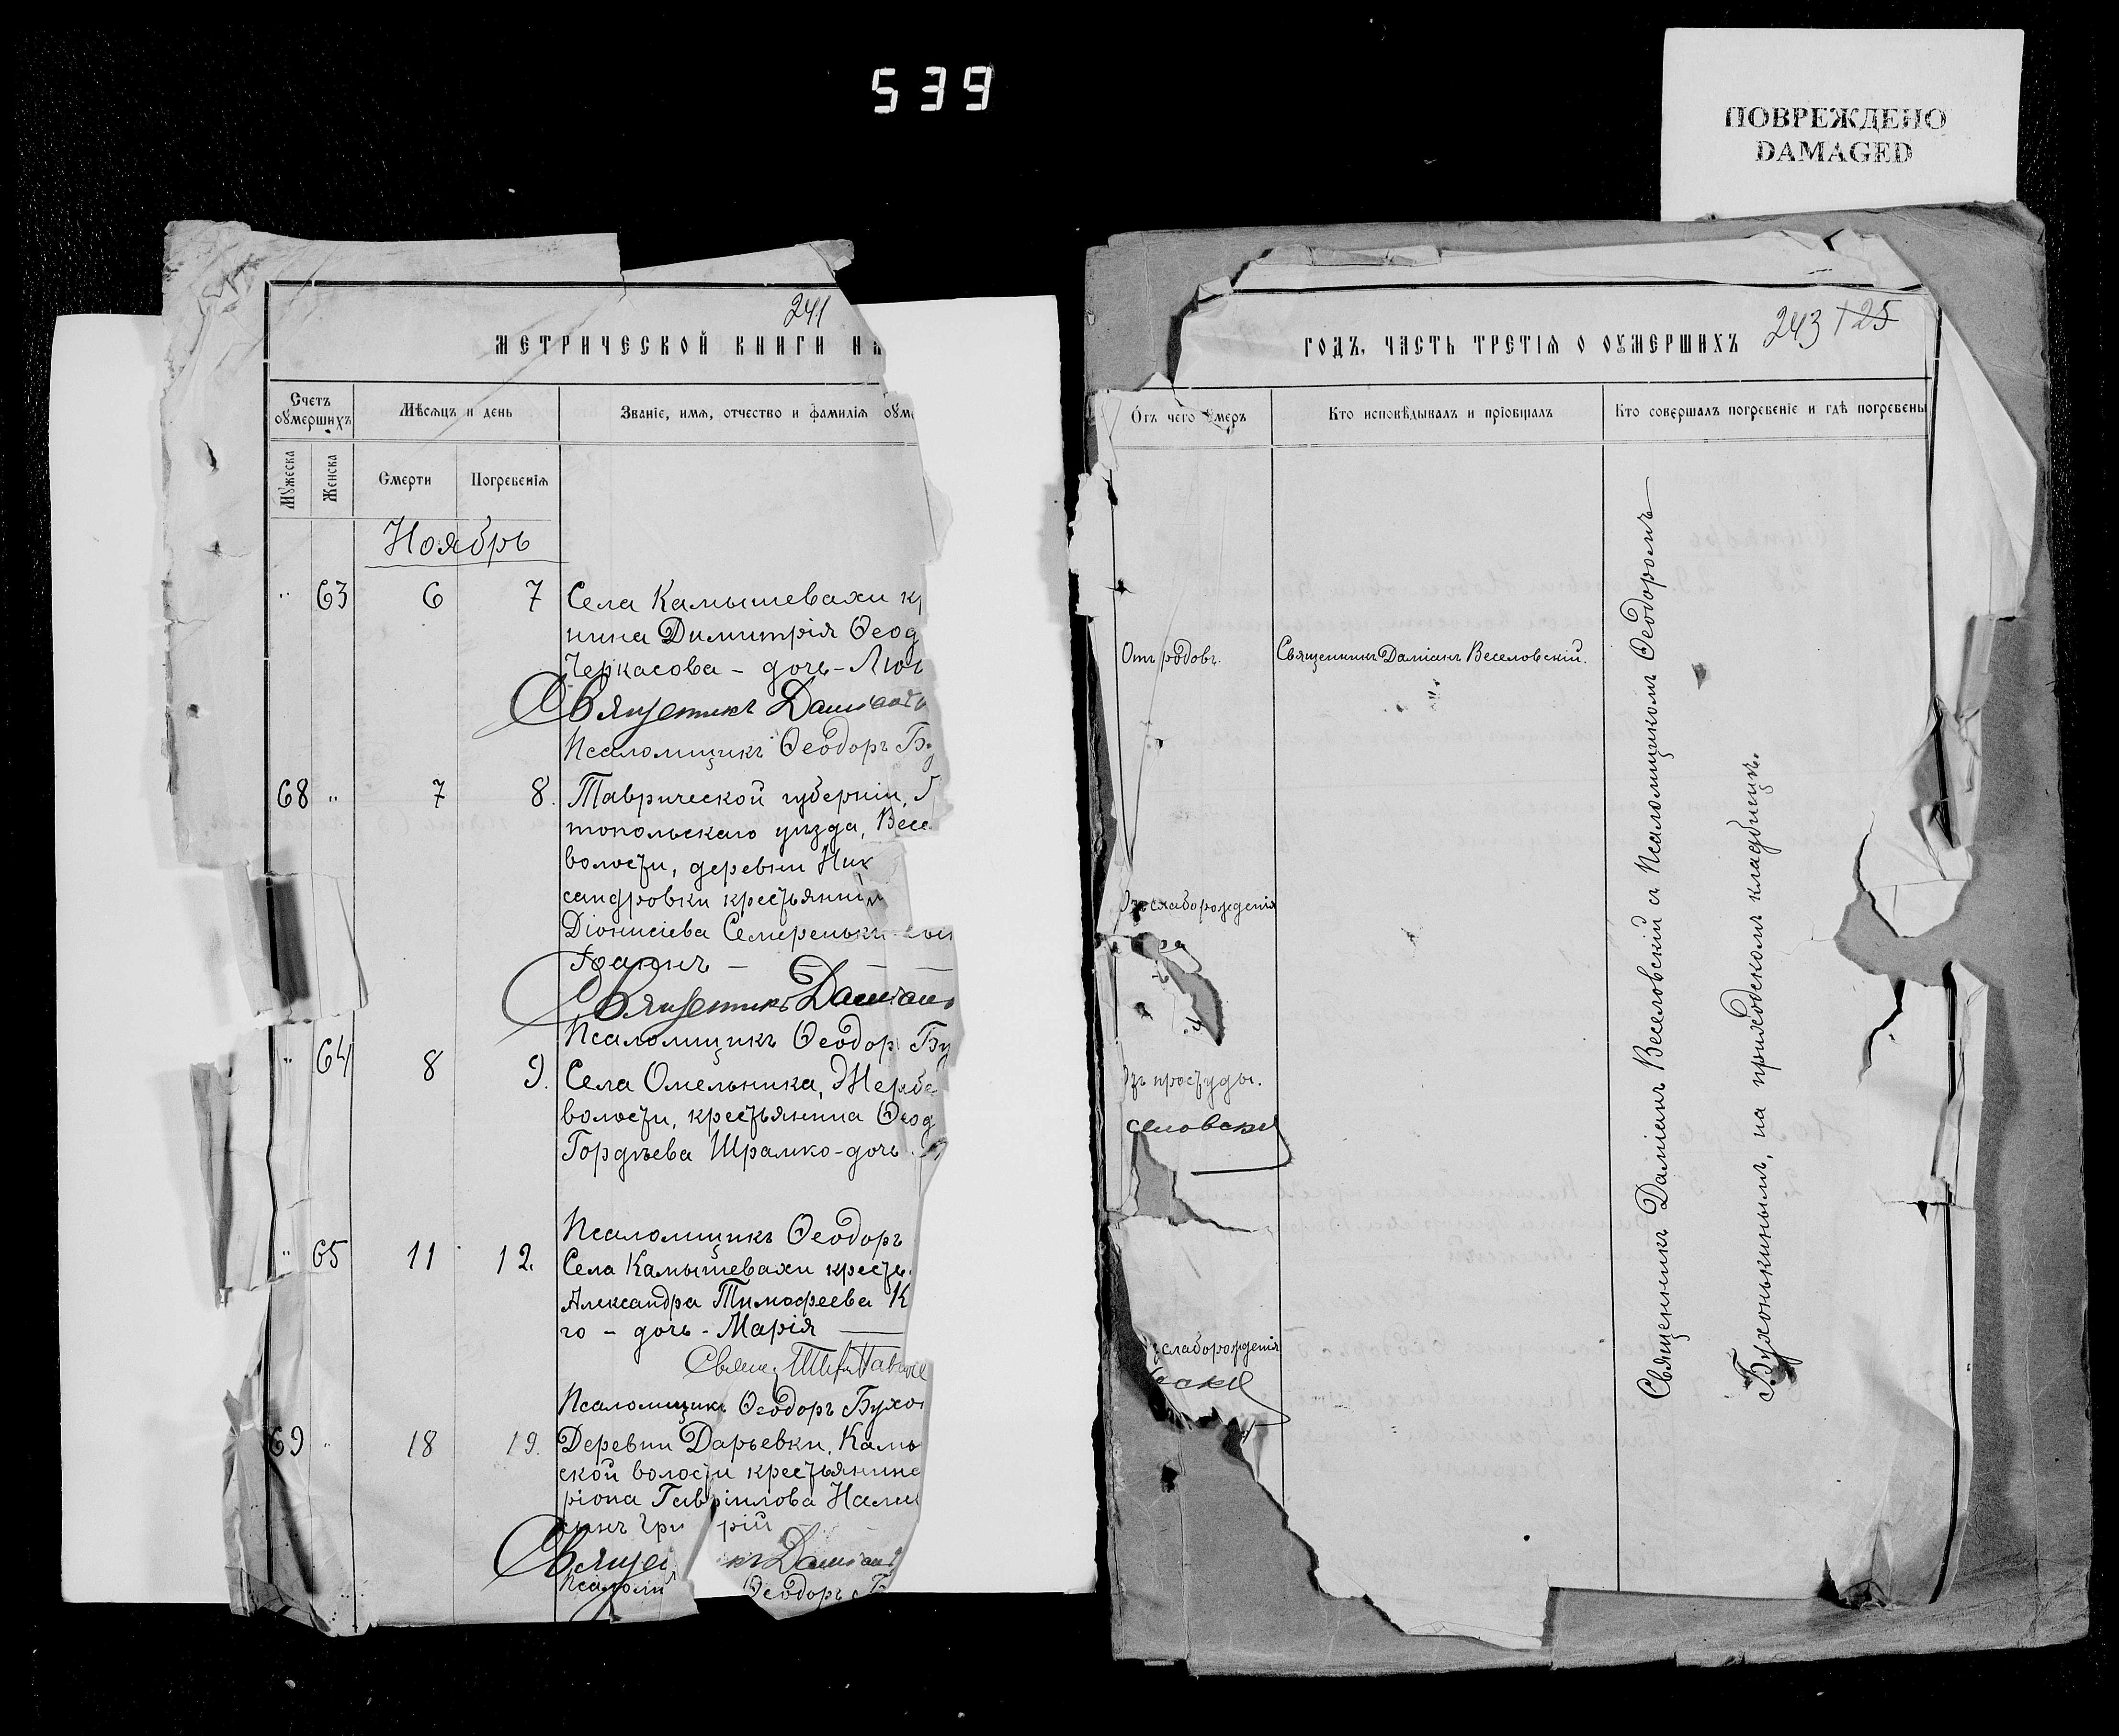 539
ПОВРЕЖДЕНО
DAMAGED
241
МЕТРИЧЕСКОЙ КНИГИ НА
Счетъ оумершихъ
Мѣсяцъ и день
Званіе, имя, отчество и фамилія оуме
Мужеска
Женска
Смерти
Погребенія
Ноябрь
" 63 6 7 Села Камышевахи кр
нина Димитрія Ѳеод
Черкасова - дочь - Люб
Священникъ Даміанъ
Псаломщикъ Ѳеодоръ Бу
68 " 7 8. Таврической губерніи,
топольскаго уѣзда, Весе
волости, деревни Ник
сандровки крестьянин
Діонисіева Семереньки сын
Іоаннъ —
Священникъ Даміанъ
Псаломщикъ Ѳеодоръ Бу
" 64 8 9. Села Омельника, Жереб
волости, крестьянина Ѳеод
Гордѣева Шрамко - дочь
Псаломщикъ Ѳеодоръ
" 65 11 12. Села Камышевахи кресть
Александра Тимофеева К
го - дочь - Марія —
Свящ.
Псаломщикъ Ѳеодоръ Бухо
69 " 18 19. Деревни Дарьевки, Камы
ской волости крестьянина
ріона Гавріилова Нали
сынъ Гри рій
Священ къ Даміанъ
Псаломщ Ѳеодоръ Б
243 125
ГОДЪ, ЧАСТЬ ТРЕТІЯ О ОУМЕРШИХЪ
Отъ чего оумеръ
Кто исповѣдывалъ и пріобщалъ
Кто совершалъ погребеніе и гдѣ погребены
Отъ родовъ.
Священникъ Даміанъ Веселовскій.
слаборожденія
простуды.
еловскій
слаборожденія
вскій
Священникъ Даміанъ Веселовскій съ Псаломщикомъ Ѳеодоромъ
Бухонькинымъ, на приходскомъ кладбищѣ.